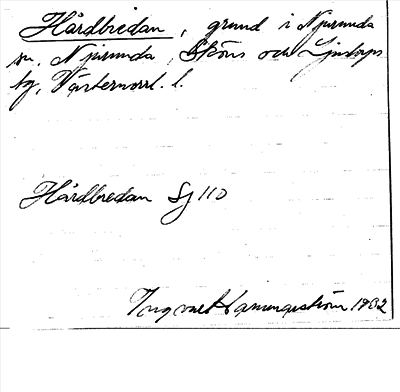 Hårdbredan, grund i Njurunda
sn, Njurunda, Sköns och Ljustorps
tg, Västernorrl. l.
Hårdbredan Sj 110
Ingvar Hammarström 1932